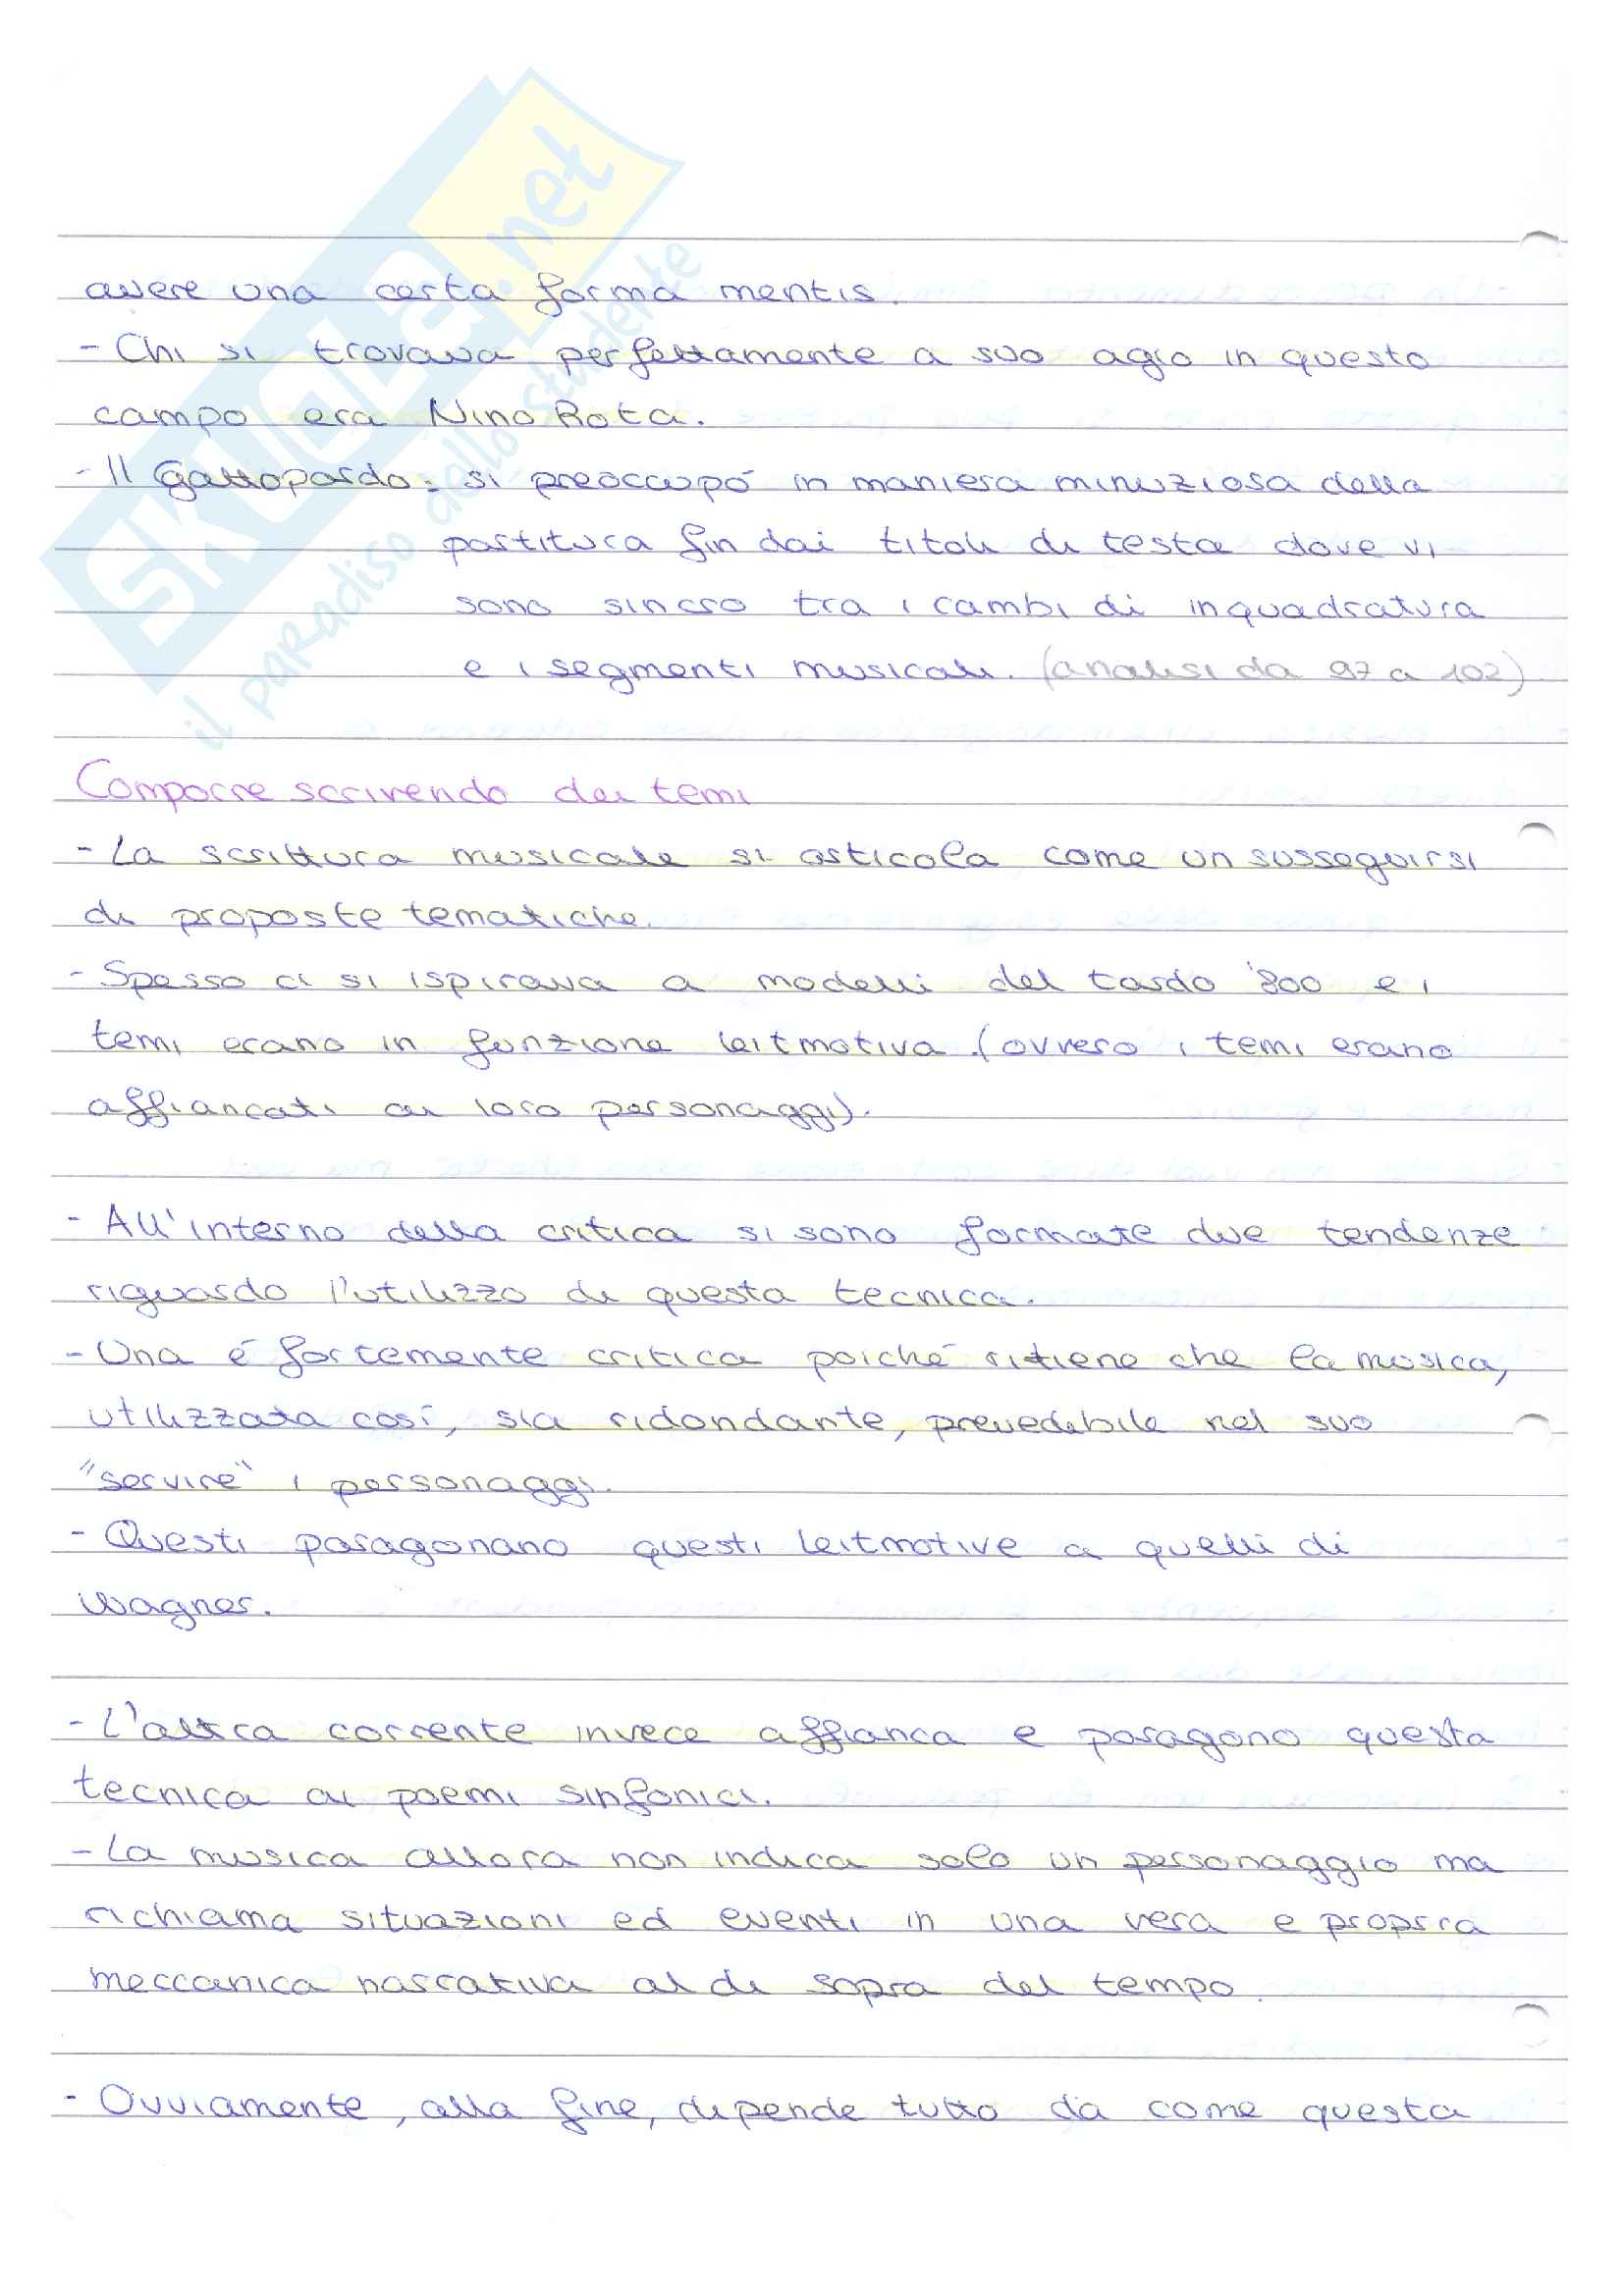 SKUOLA.net
il paradiso dello studente
avere una certa forma mentis.
- Chi si trovava perfettamente a suo agio in questo
campo era Nino Rota.
- Il Gattopardo: si preoccupó in maniera minuziosa della
partitura fin dai titoli di testa dove vi
sono sincro tra i cambi di inquadratura
e i segmenti musicali. (analisi da 97 a 102)
Comporre scrivendo dei temi
- La scrittura musicale si articola come un susseguirsi
di proposte tematiche.
- Spesso ci si ispirava a modelli del tardo '800 e i
temi erano in funzione leitmotiva. (ovvero i temi erano
affiancati ai loro personaggi).
- All'interno della critica si sono formate due tendenze
riguardo l'utilizzo di questa tecnica.
- Una é fortemente critica poiché ritiene che la musica,
utilizzata così, sia ridondante, prevedibile nel suo
"servire" i personaggi.
- Questi paragonano questi leitmotive a quelli di
Wagner.
- L'altra corrente invece affianca e paragona questa
tecnica ai poemi sinfonici.
- La musica allora non indica solo un personaggio ma
richiama situazioni ed eventi in una vera e propria
meccanica narrativa al di sopra del tempo.
- Ovviamente, alla fine, dipende tutto da come questa